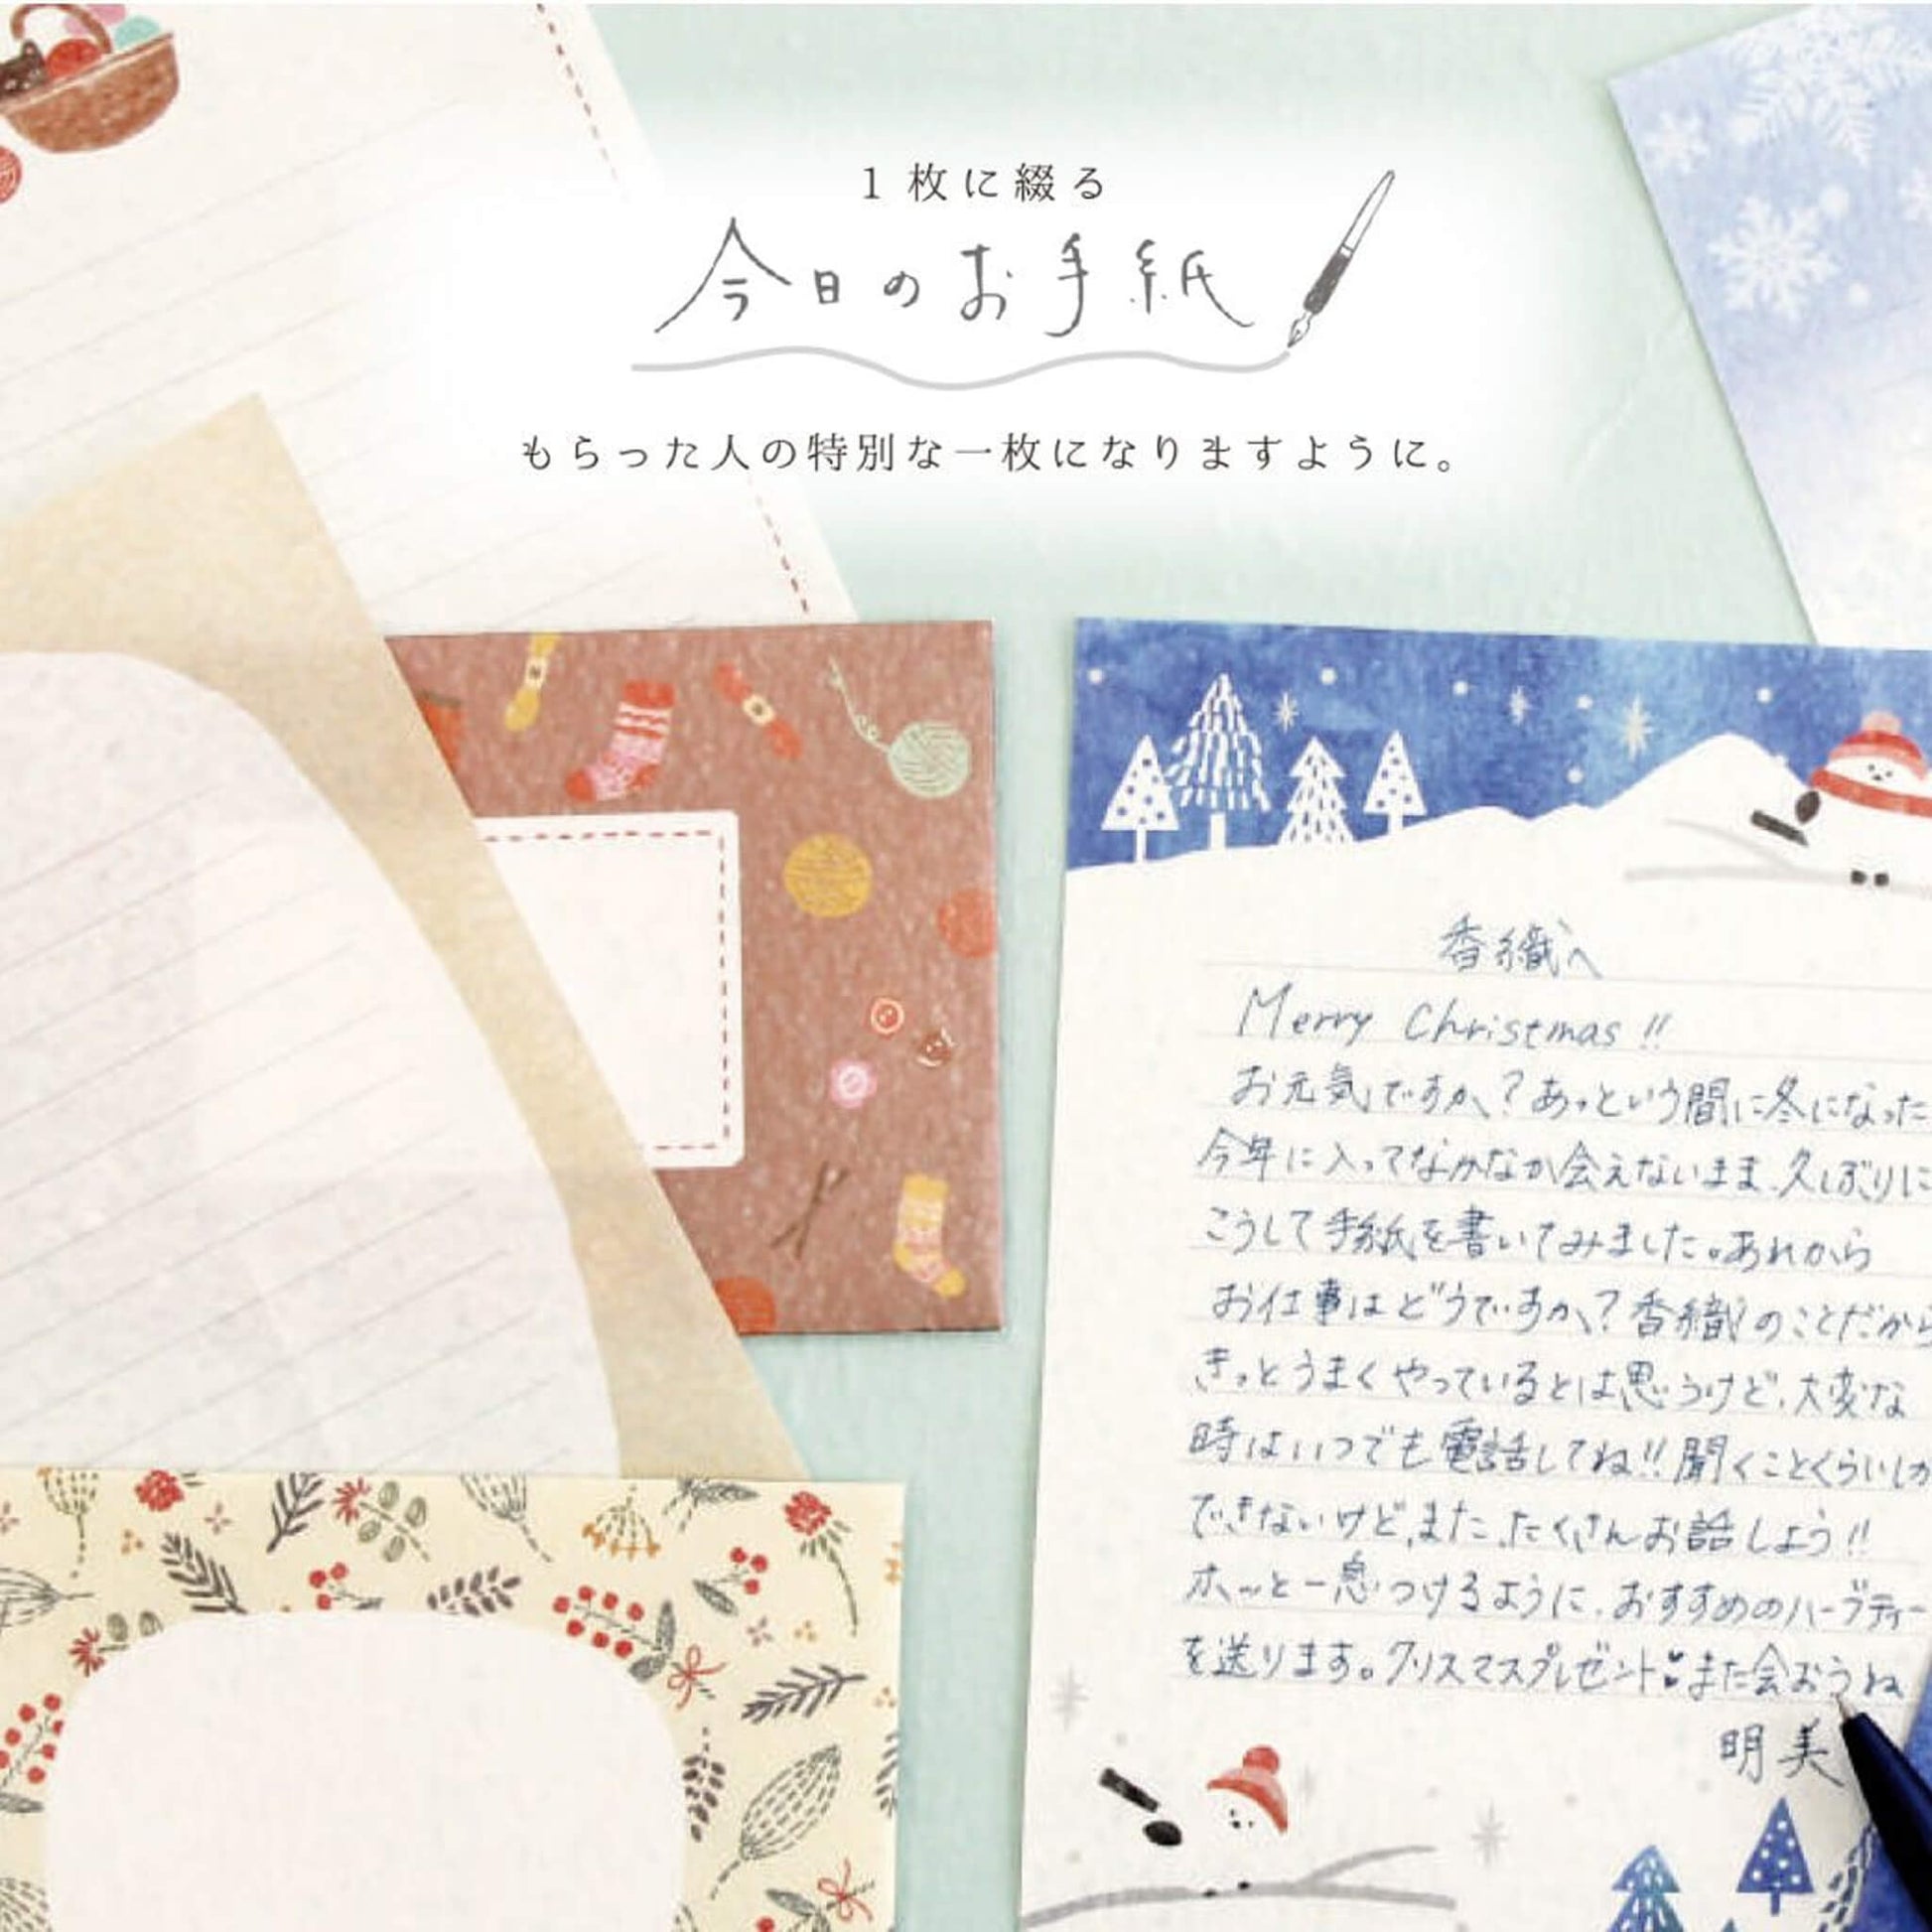 1枚に綴る
今日のお手紙
もらった人の特別な一枚になりますように。
香織へ
Merry Christmas!!
お元気ですか？あっという間に冬になった
今年に入ってなかなか会えないまま、久しぶりに
こうして手紙を書いてみました。あれから
お仕事はどうですか？香織のことだから
きっとうまくやっているとは思うけど、大変な
時はいつでも電話してね!!聞くことくらいしか
できないけど、また、たくさんお話しよう!!
ホッと一息つけるように、おすすめのハーブティー
を送ります。クリスマスプレゼント♥また会おうね
明美